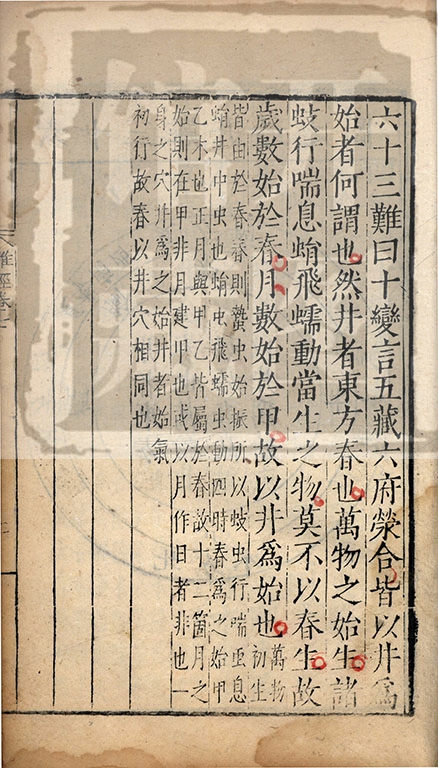 六十三難曰十變言五藏六府滎合皆以井爲
始者何謂也然井者東方春也萬物之始生諸
蚑行喘息蜎飛蠕動當生之物莫不以春生故
歲數始於春月數始於甲故以井爲始也萬物初生
皆由於春春則蟄虫始振所以蚑虫行喘虫息
蜎井中虫也蜎虫飛蠕虫動四時春爲之始甲
乙木也正月與甲乙皆屬於春故十二箇月之
始則在甲非月建甲也或以月作日者非也一
身之穴井爲之始井者始氣
初行故春以井穴相同也
難經卷